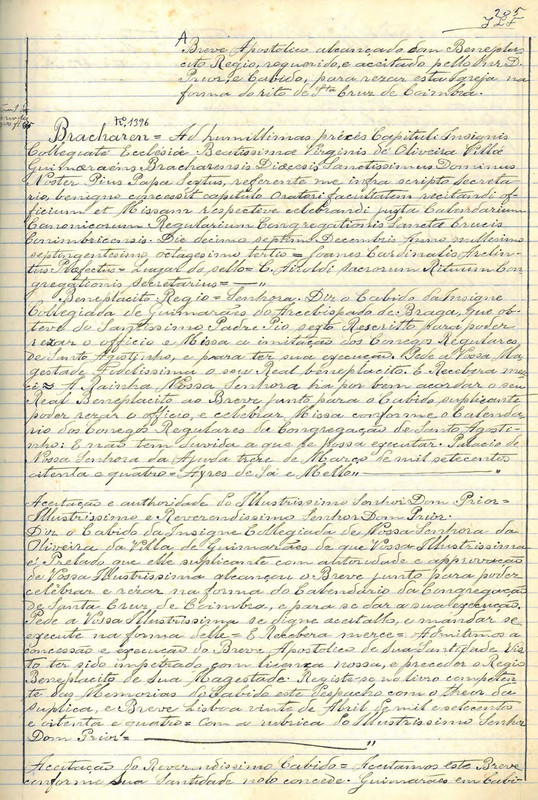 205
A
Breve Apostolico alcançado com Beneplacito
Regio, requerido, e aceitado pello Sñr D.
Prior, e Cabido, para rezar esta Igreja na
forma do rito de Sta Cruz de Coimbra.
Nº 1396
Bracharen = Ad humillimas preces Capituli Insignis
Collegiate Ecclesiæ Beatissimæ Virginis de Oliveira Villæ
Guimaraens, Bracharensis Diœcesis Sanctissimus Dominus
Noster Pius Papa Sextus, referente me infra scripto secreta
rio, benigne concessit capitulo Oratori facultatem recitandi of
ficium et Missam respective celebrandi juxta Calendarium
Canonicorum Regularium Congregationis Sanctæ Crucis
Conimbricensis. Die decima septima Decembris Anno millesimo
septingentesimo octogesimo tertio = Joanes Cardinalis Archin
tus Prefectus = Lugar do sello = C. Airoldi sacrorum Rituum Con
gregationis Secretarius =
Beneplacito Regio = Senhora. Diz o Cabido da Insigne
Collegiada de Guimarães do Arcebispado de Braga, que ob
teve do Santissimo Padre Pio sexto Rescripto para poder
rezar o officio e Missa a imitação dos Conegos Regulares
de Santo Agostinho, e para ter sua execução. Pede a Vossa Ma
gestade Fidelissima o seu Real beneplacito. E Recebera mer
ce = A Rainha Nossa Senhora ha por bem acordar o seu
Real Beneplacito ao Breve junto para o Cabido suplicante
poder rezar o officio, e celebrar Missa conforme o Calenda
rio dos Conegos Regulares da Congregação de Santo Agosti
nho: E não tem duvida a que se possa executar. Palacio de
Nossa Senhora da Ajuda treze de Março de mil setecentos
oitenta e quatro = Ayres de Sá e Mello
Aceitação e authoridade do Illustrissimo Senhor Dom Prior =
Illustrissimo e Reverendissimo Senhor Dom Prior.
Diz o Cabido da Insigne Collegiada de Nossa Senhora da
Oliveira da Villa de Guimarães de que Vossa Illustrissima
é Prelado que elle suplicante com autoridade e approvação
de Vossa Illustrissima alcançou o Breve junto para poder
celebrar e rezar na forma do Calendario da Congregação
de Santa Cruz de Coimbra, e para se dar a sua execução.
Pede a Vossa Illustrissima se digne aceital-o, e mandar se
execute na forma delle = E Recebera merce = Admitimos a
concessão e execução do Breve Apostolico de Sua Santidade vis
to ter sido impetrado com licença nossa, e preceder o Regio
Beneplacito de Sua Magestade. Registe-se no livro competen
te das Memorias do Cabido este Despacho com o theor da
suplica, e Breve Lisboa vinte de Abril de mil e setecentos
e oitenta e quatro = Com a rubrica do Illustrissimo Senhor
Dom Prior =
Aceitação do Reverendissimo Cabido = Aceitamos este Breve
conforme Sua Santidade nolo concede. Guimarães em Cabi-